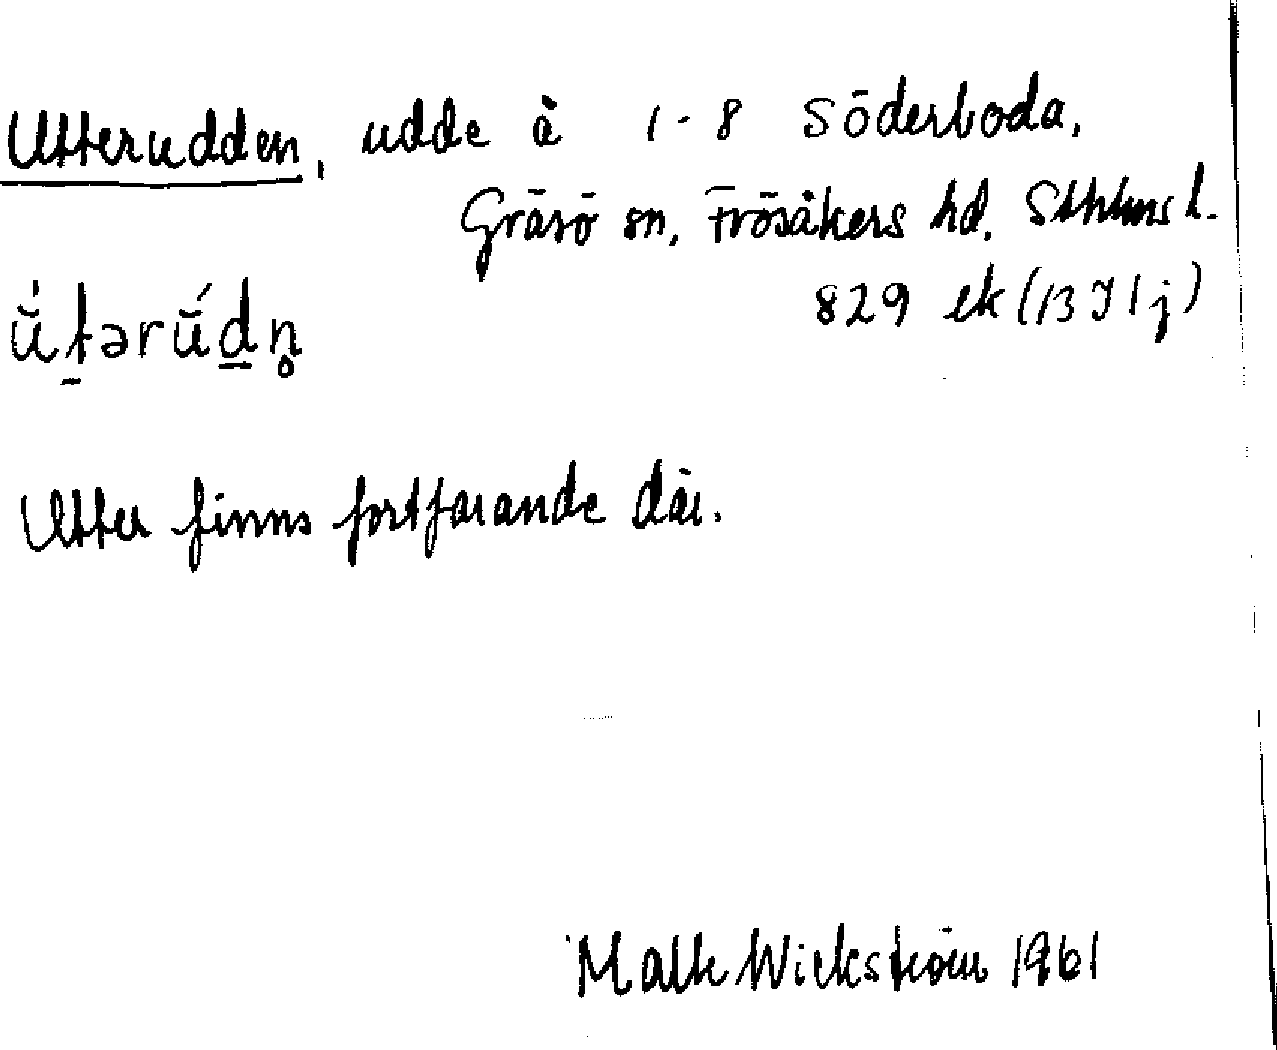 Utterudden, udde å 1-8 Söderboda,
Gräsö sn, Frösåkers hd, Sthlms l.
829 ek (13 I 1 j)
ǜtərǘdn̥
Utter finns fortfarande där.
Malte Wickström 1961